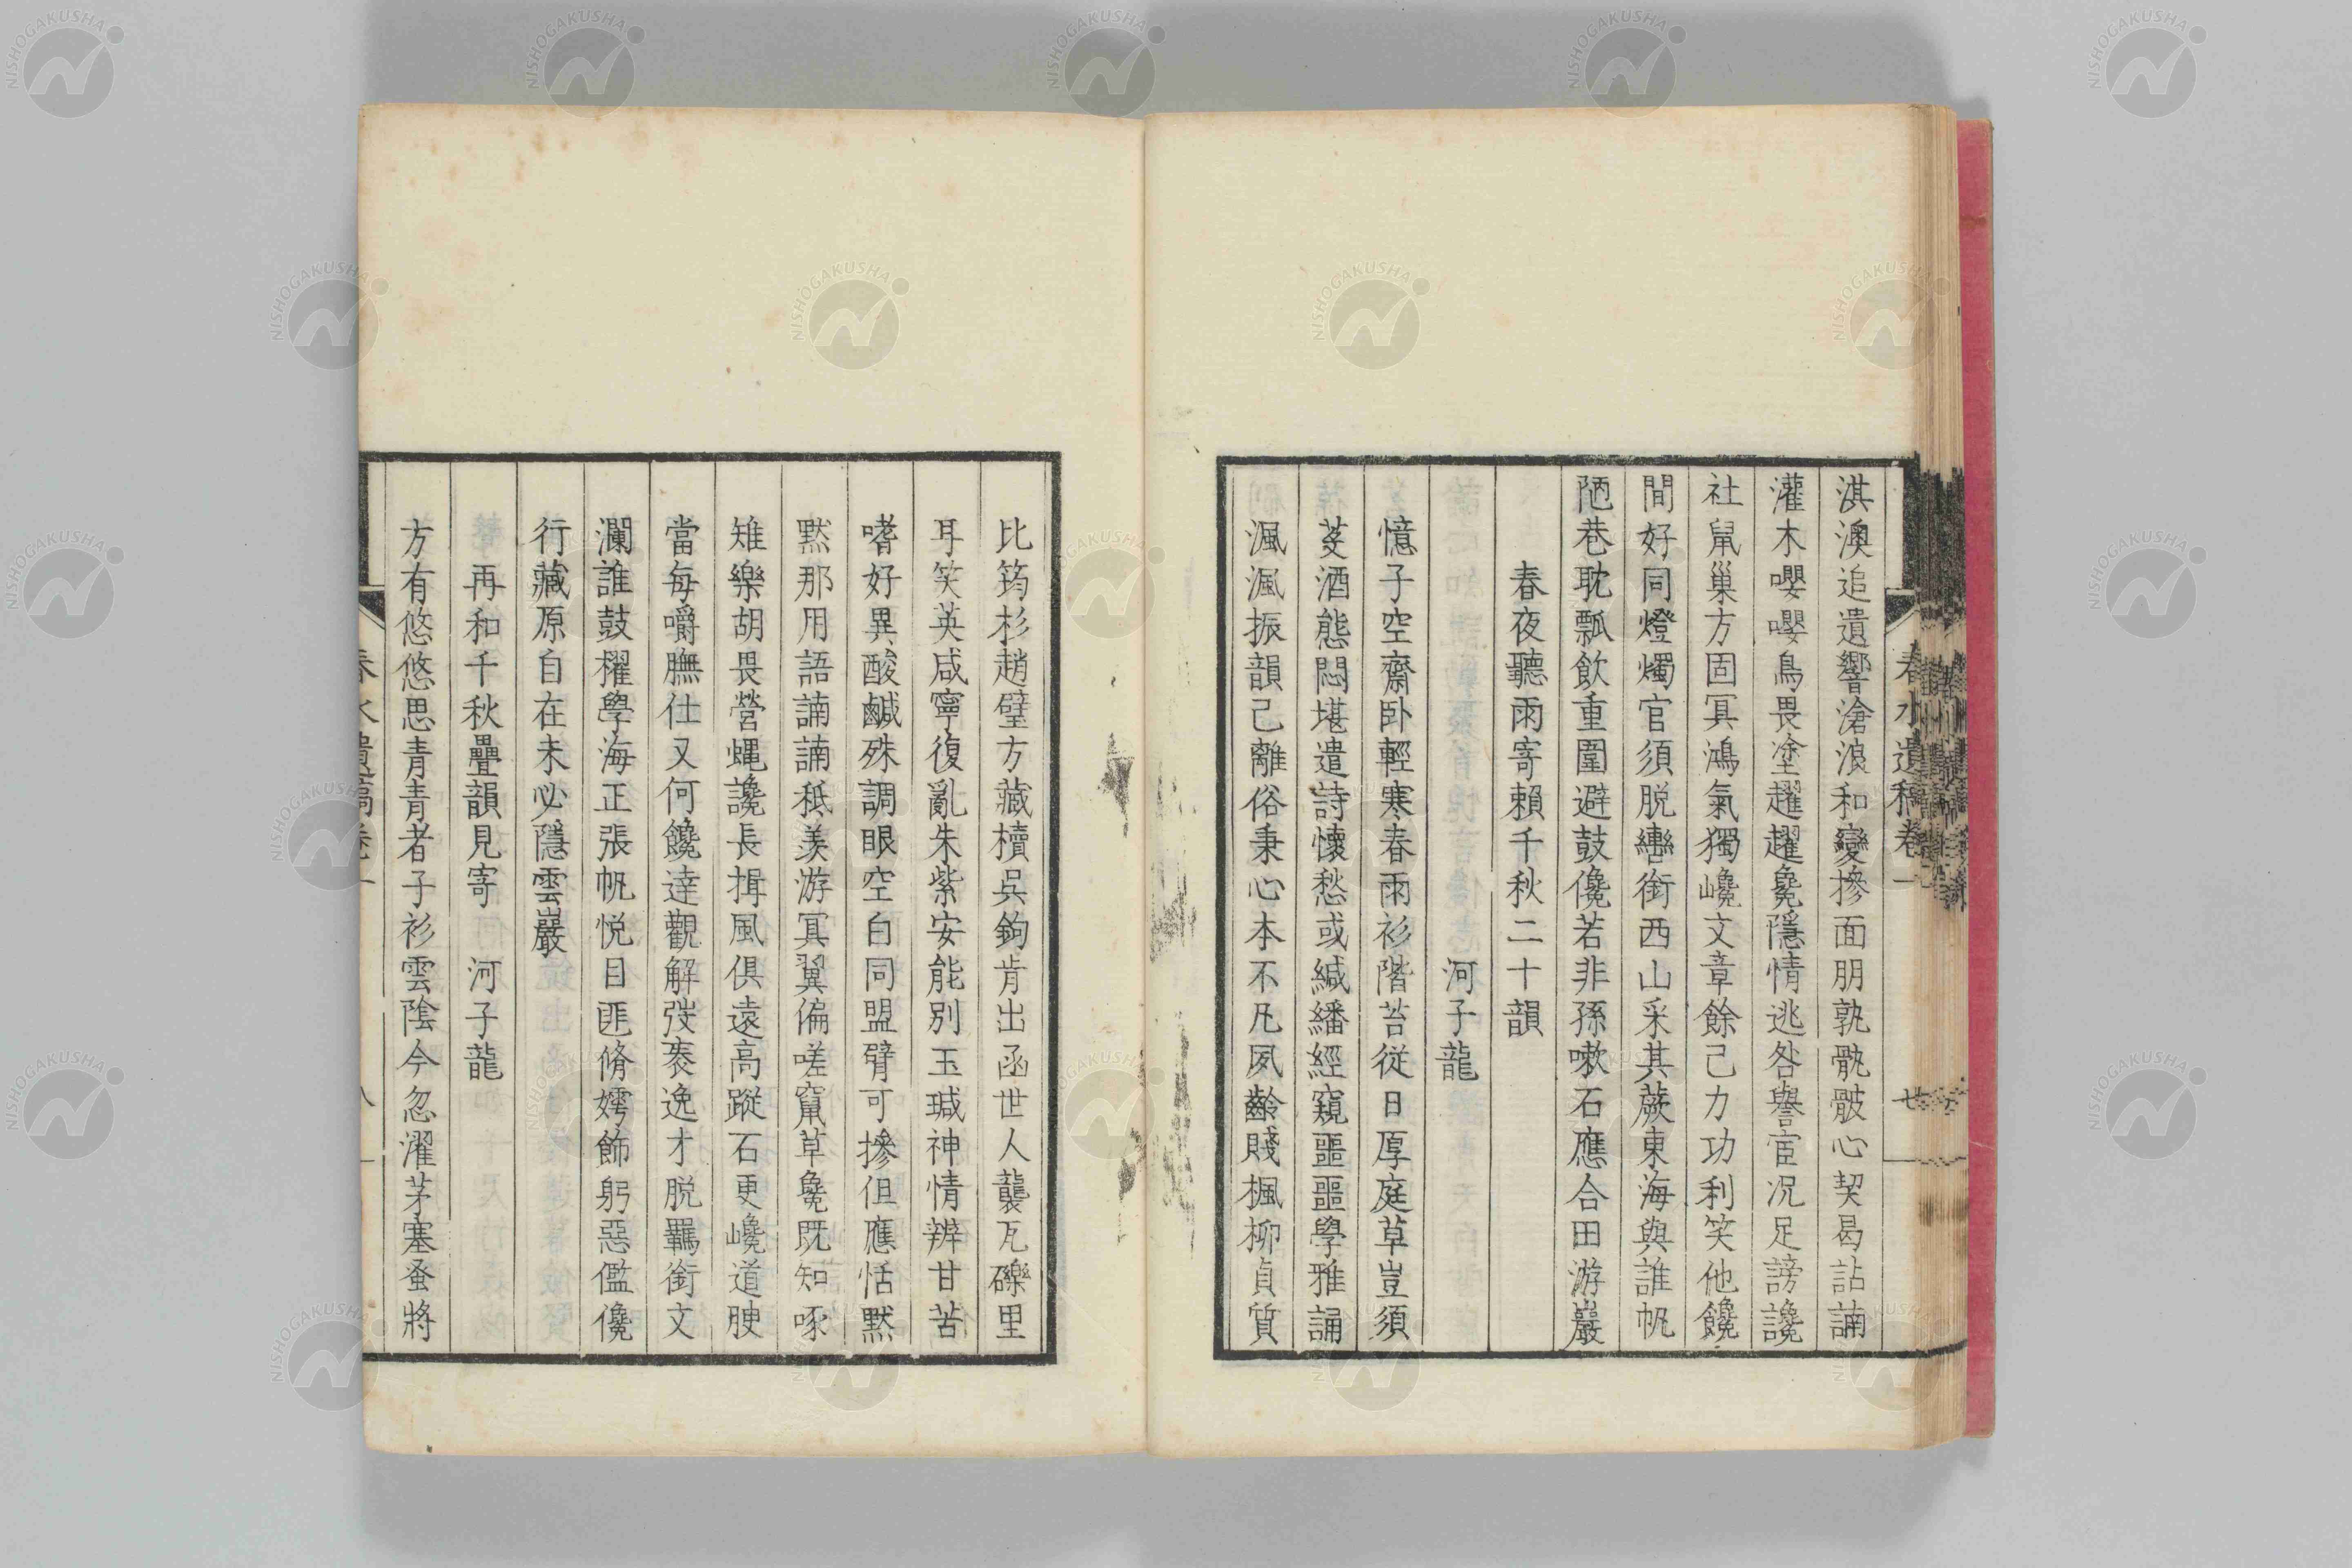 淇澳追遺響滄浪和變摻面朋孰骩骳心契曷詀諵
灌木嚶嚶鳥畏塗趯趯毚隱情逃咎譽宦况足謗讒
社鼠巢方固冥鴻氣獨巉文章餘己力功利笑他饞
間好同燈燭官須脱轡銜西山采其蕨東海與誰帆
陋巷耽瓢飲重圍避鼓儳若非孫嗽石應合田游巖
春夜聽雨寄賴千秋二十韻
河子龍
憶子空齋卧輕寒春雨衫階苔從日厚庭草豈須
芟酒態悶堪遣詩懷愁或緘繙經窺噩噩學雅誦
渢渢振韻己離俗秉心本不凡夙齡賤楓柳貞質
春水遺稿卷一
廿
比筠杉趙璧方藏櫝呉鉤肯出函世人襲瓦礫里
耳笑英咸寧復亂朱紫安能别玉瑊神情辨甘苦
嗜好異酸鹹殊調眼空白同盟臂可摻但應恬黙
黙那用語諵諵秪羡游冥翼偏嗟竄草毚既知啄
雉樂胡畏營蝿讒長揖風俱遠高蹤石更巉道腴
當每嚼膴仕又何饞達觀解弢袠逸才脱羈銜文
瀾誰鼓櫂學海正張帆悦目匪脩嫮飾躬惡儖儳
行藏原自在未必隱雲巖
再和千秋疊韻見寄　河子龍
方有悠悠思青青者子衫雲陰今忽濯茅塞蚤將